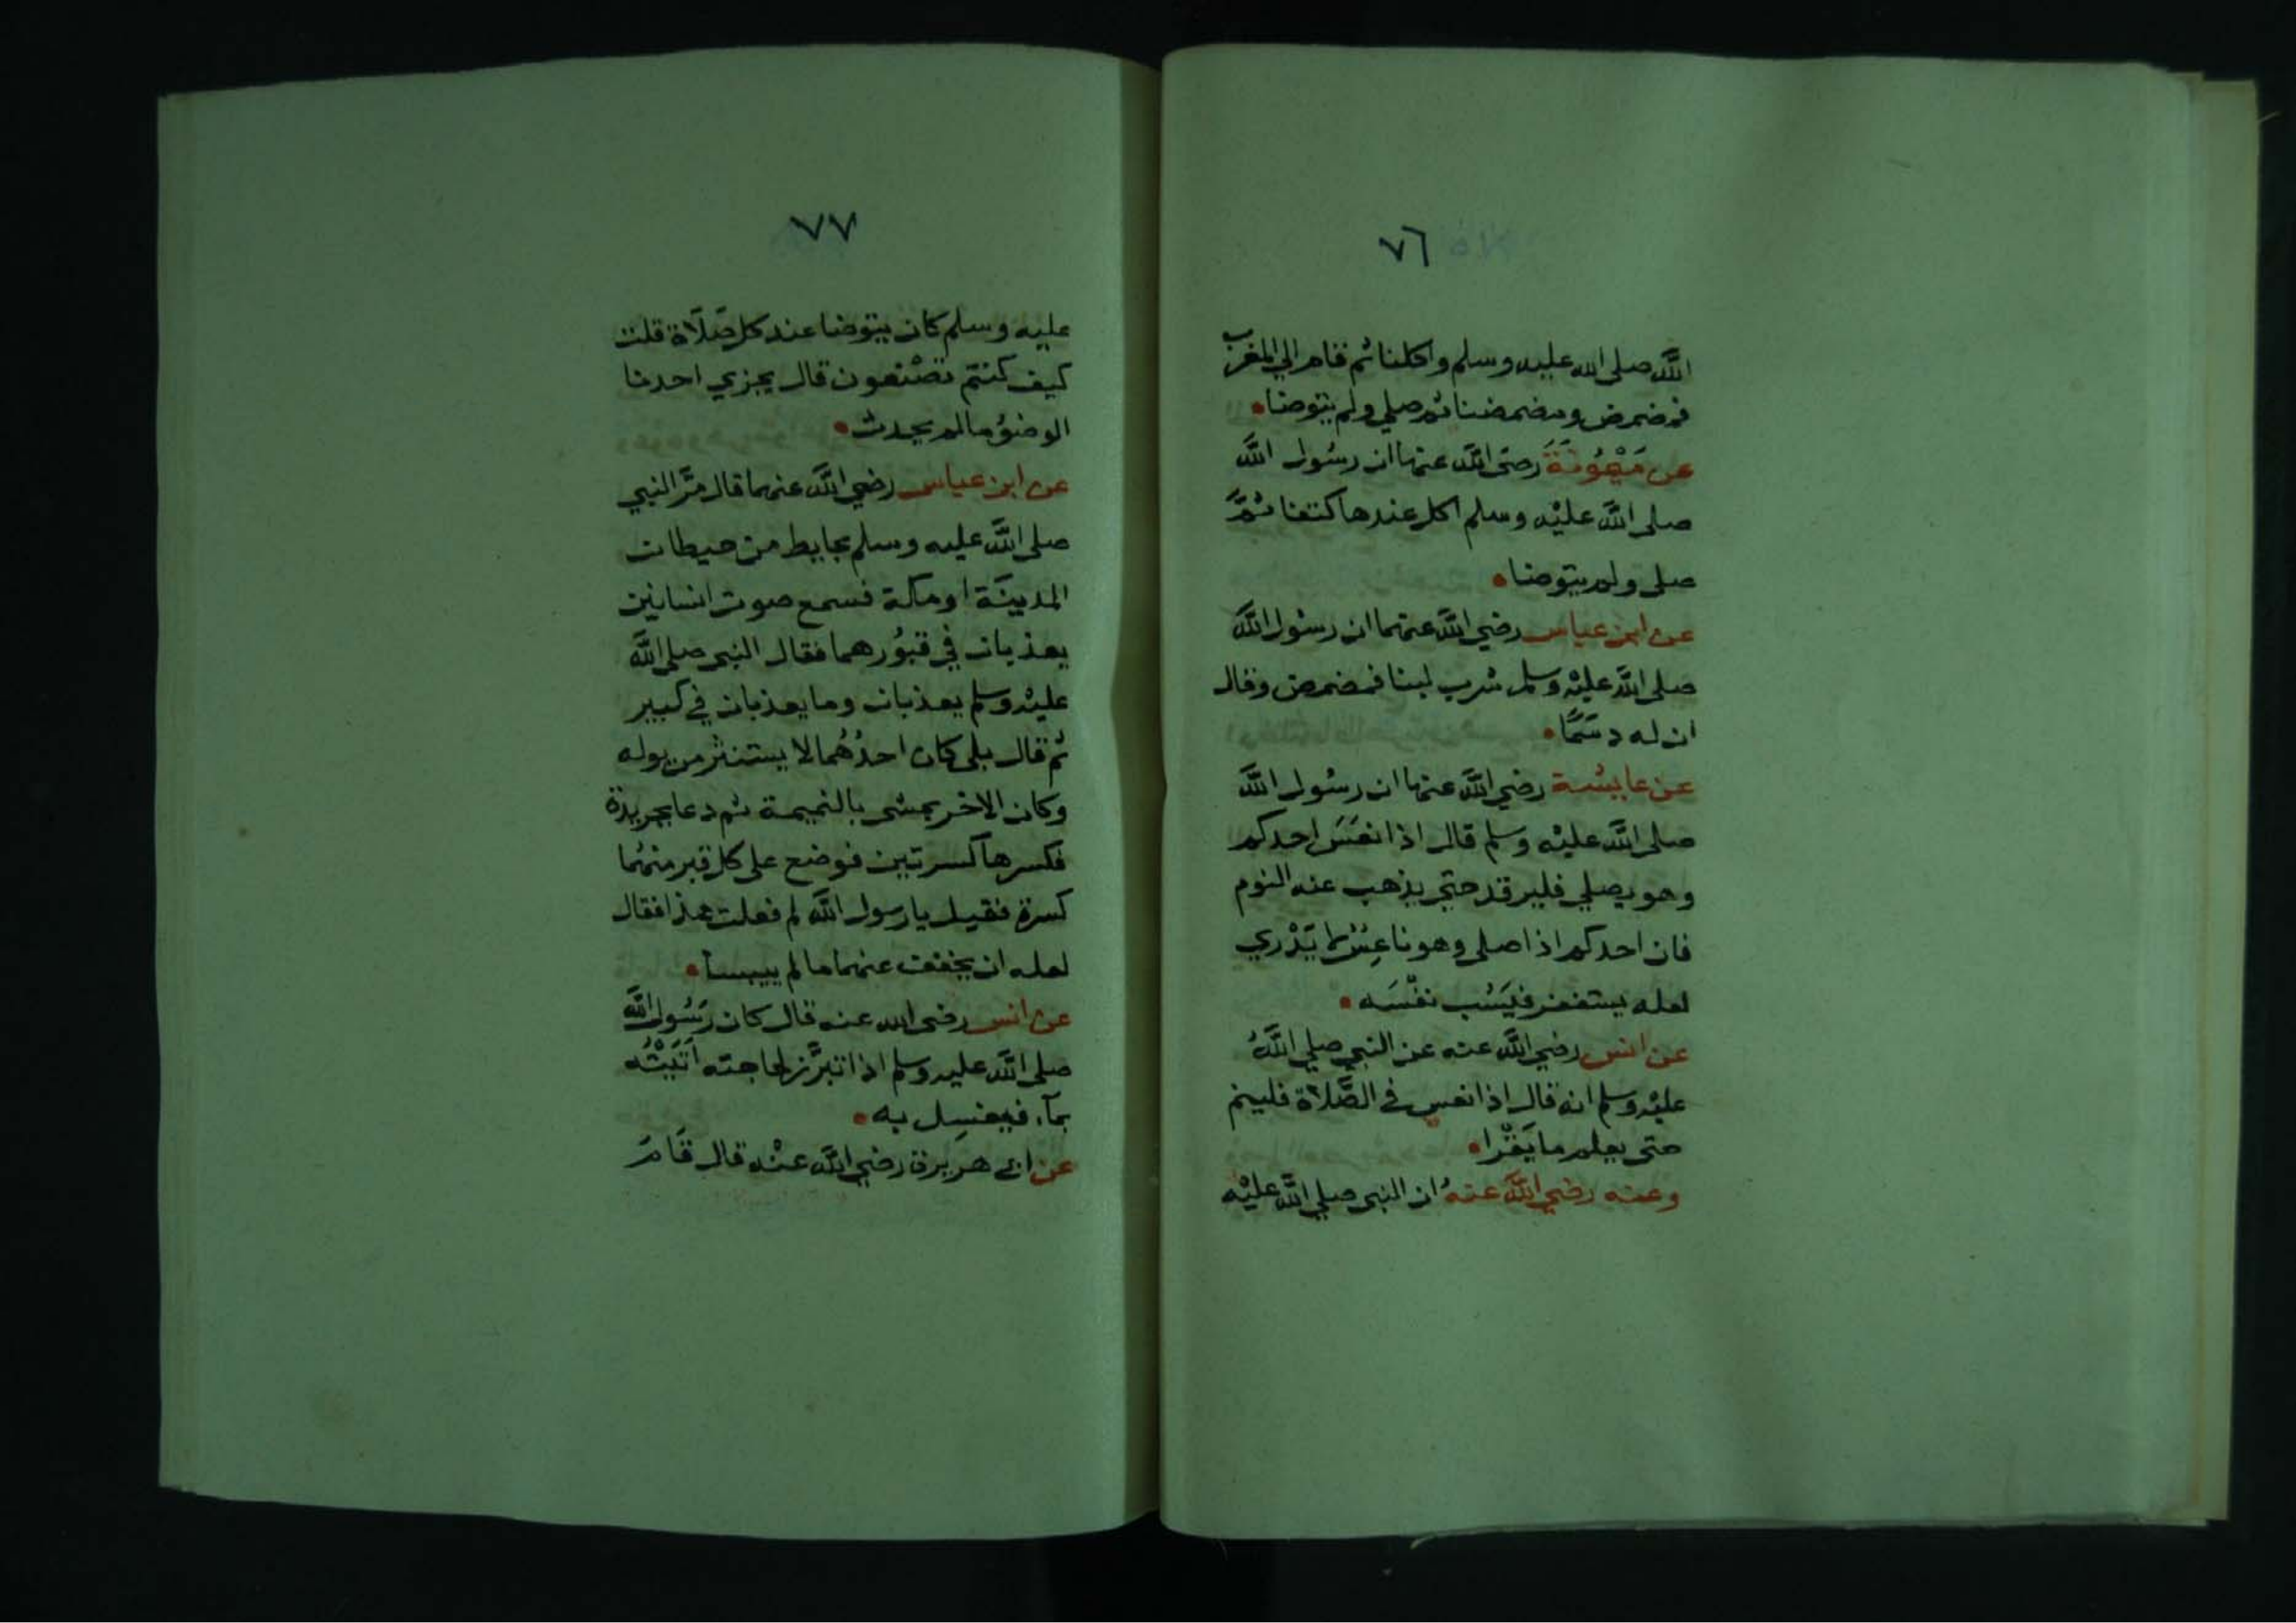 ٧٦
اللَّه صلى الله عليه وسلم واكلنا ثم قام الي المغرب
فمضمض ومضمضنا ثم صلي ولم يتوضا
عن مَيْمُونَةَ رضي اللَّه عنها ان رسُول اللَّه
صلى اللَّه عليْه وسلم اكل عندها كتفا ثمَّ
صلى ولم يتوضا
عن ابن عباس رضي اللَّه عنهما ان رسُول اللَّه
صلى اللَّه عليْه وسلم شرب لبنا فمضمض وقال
ان له دسَمًا
عن عايشة رضي اللَّه عنها ان رسُول اللَّه
صلى اللَّه عليْه وسلم قال اذا نعَسَ احدكم
وهو يصلي فليرقد حتى يذهب عنه النوم
فان احدكم اذا صلى وهو ناعِسٌ لا يَدْري
لعله يستغفر فيَسُب نفْسَه
عن انس رضي اللَّه عنه عن النبي صلي اللَّهُ
عليْه وسلم انه قال اذا نعس في الصَّلاة فلينم
حتى يعلم ما يَقْرا
وعنه رضي اللَّه عنهُ ان النبي صلي اللَّه عليْه
٧٧
عليه وسلم كان يتوضا عند كل صَلَاة قلت
كيف كنتم تصْنعون قال يجزي احدنا
الوضوُ مالم يحدث
عن ابن عباس رضي اللَّه عنهما قال مَرَّ النبي
صلى اللَّه عليه وسلم بحايط من حيطان
المدينَة او مكة فسمع صوت انسانين
يعذبان في قبُورهما فقال النبي صلى اللَّه
عليْه وسلم يعذبان وما يعذبان في كبير
ثم قال بلى كان احدُهُما لا يستنثر من بوله
وكان الاخر يمشى بالنميمة ثم دعا بجريدة
فكسرها كسرتين فوضع على كل قبر منهُما
كسرة فقيل يا رسول اللَّه لم فعلت هذا فقال
لعله ان يخفف عنهما ما لم ييبسا
عن انس رضى الله عنه قال كان رَسُول اللَّه
صلى اللَّه عليه وسلم اذا تبرَّز لحاجته اَتَيْتُه
بمآء فيغسِل به
عن ابي هريرة رضي اللَّه عنْه قال قَامَ